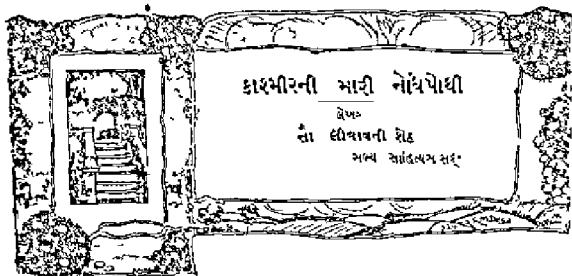 કાશ્મીરની મારી નોંધપોથી
લેખક
સૌ લીલાવતી શેઠ
સભ્ય સાહિત્ય સંસદ